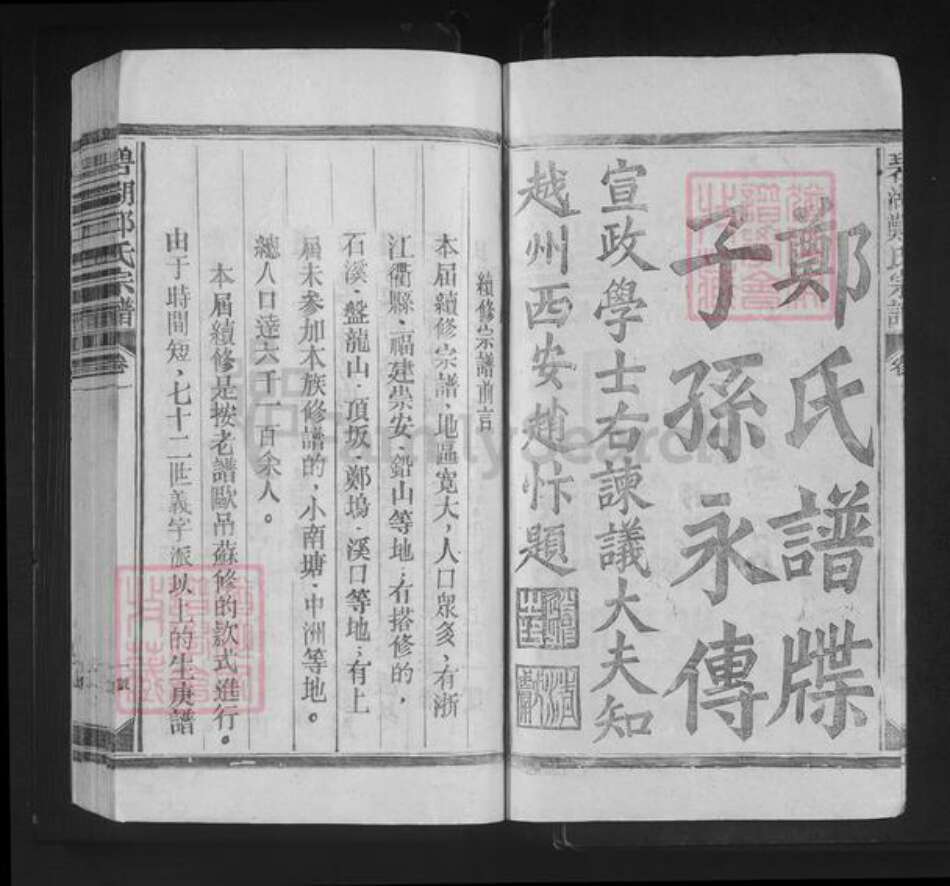 鄭氏譜牒
子孫永傳
宣政學士右諫議大夫知
越州西安趙忭題
續修宗譜前言
本届續修宗譜、地區宽大，人口衆多、有浙
江衢縣、福建崇安、鉛山等地；有搭修的，
石溪．盤龍山．頂坂．鄭塢．溪口等地；有上
届未参加本族修譜的，小南塘．中洲等地。
總人口達六千一百余人。
本届續修是按老譜歐吊蘇修的款式進行。
由于時間短，七十二世義字派以上的生庚譜
碧湖鄭氏宗譜
卷一
FamilySearch